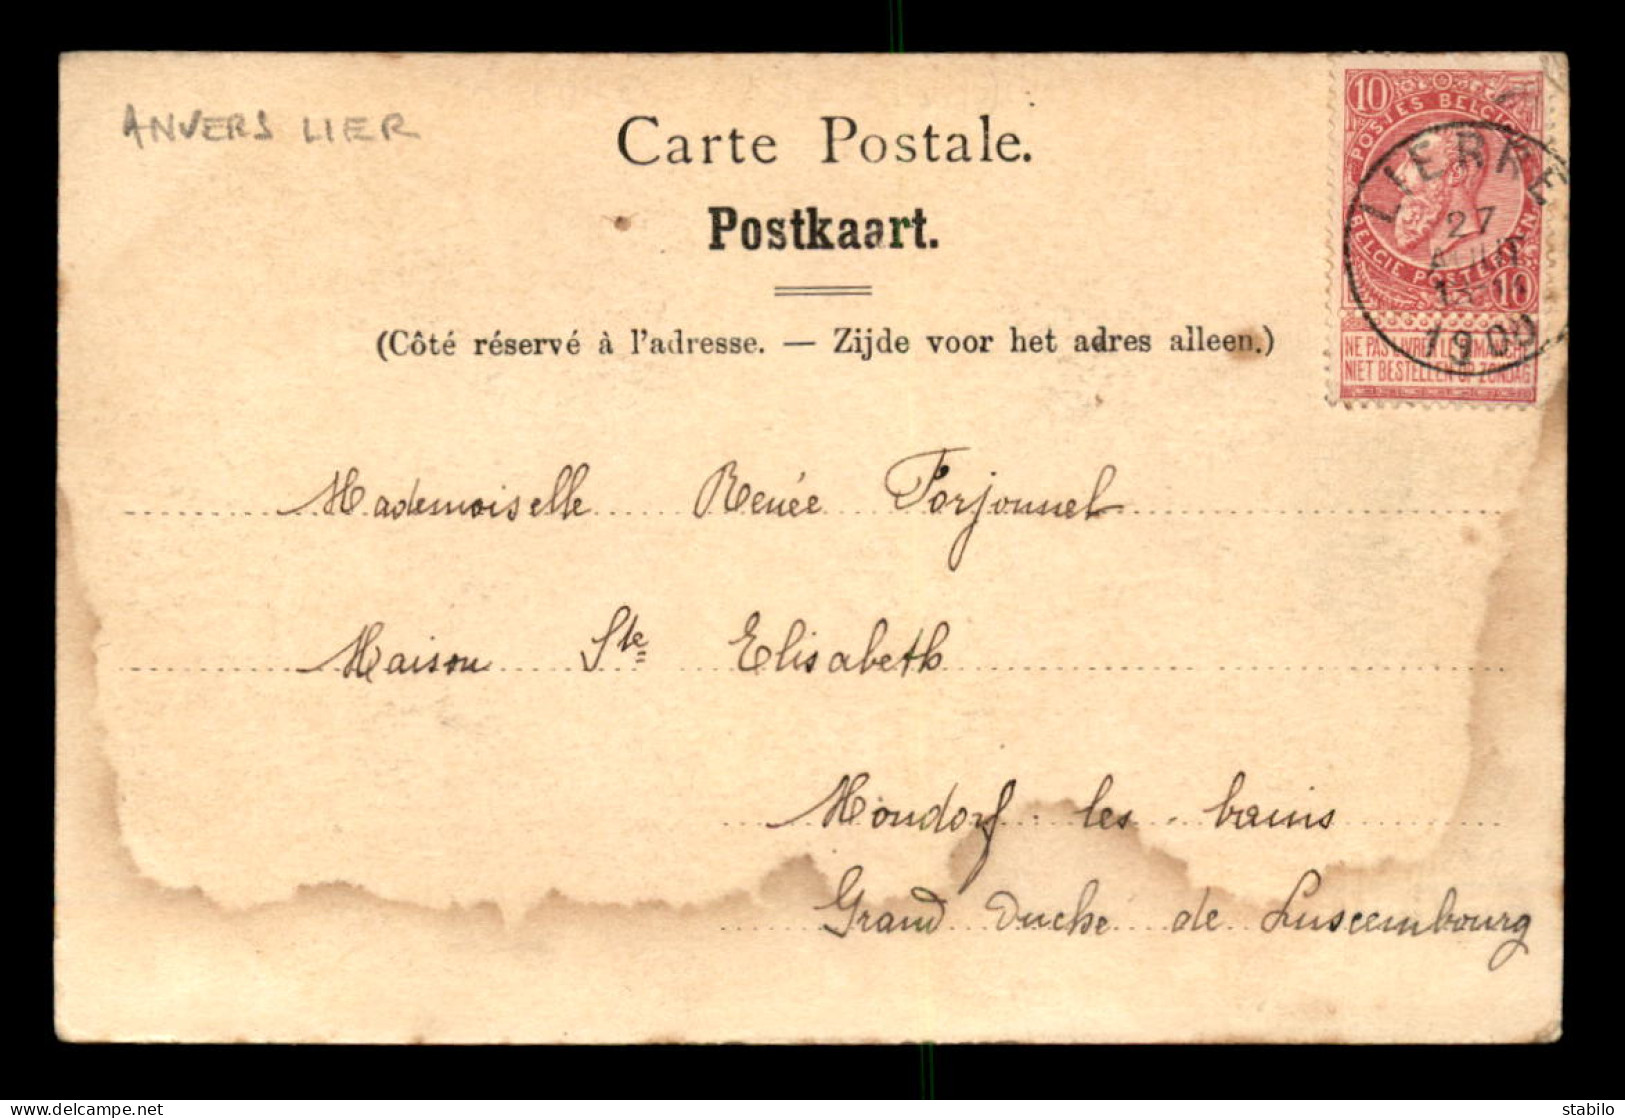 ANVERS LIER
Carte Postale.
Postkaart.
(Côté réservé à l'adresse. — Zijde voor het adres alleen.)
10 10
POSTES BELGIQUE
BELGIE POSTERIJEN
NE PAS LIVRER LE DIMANCHE
NIET BESTELLEN OP ZONDAG
LIERRE
27
AOUT
1900
Mademoiselle Renée Forjonnel
Maison Ste Elisabeth
Mondorf les bains
Grand Duché de Luxembourg
delcampe.net stabilo